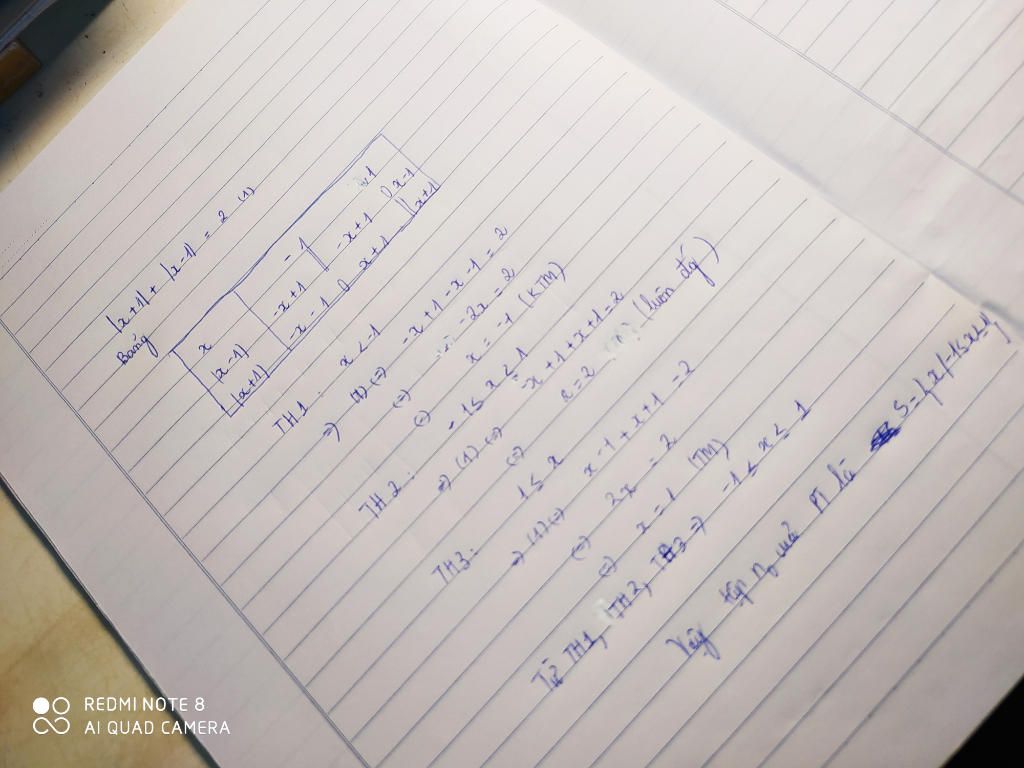 |x+1| + |x-1| = 2 (1)
Bảng
x -1 1
|x-1| -x+1 | -x+1 0 x-1
|x+1| -x-1 0 x+1 | x+1
TH1: x < -1
=> (1) <=> -x+1-x-1 = 2
<=> -2x = 2
<=> x = -1 (KTM)
TH2: -1 ≤ x < 1
=> (1) <=> -x+1+x+1=2
<=> 2 = 2 (luôn đg)
TH3: 1 ≤ x
=> (1) <=> x-1+x+1 = 2
<=> 2x = 2
<=> x = 1 (TM)
Từ TH1, TH2, TH3 => -1 ≤ x ≤ 1
Vậy tập no của PT là S = {x/-1≤x≤1}
REDMI NOTE 8
AI QUAD CAMERA